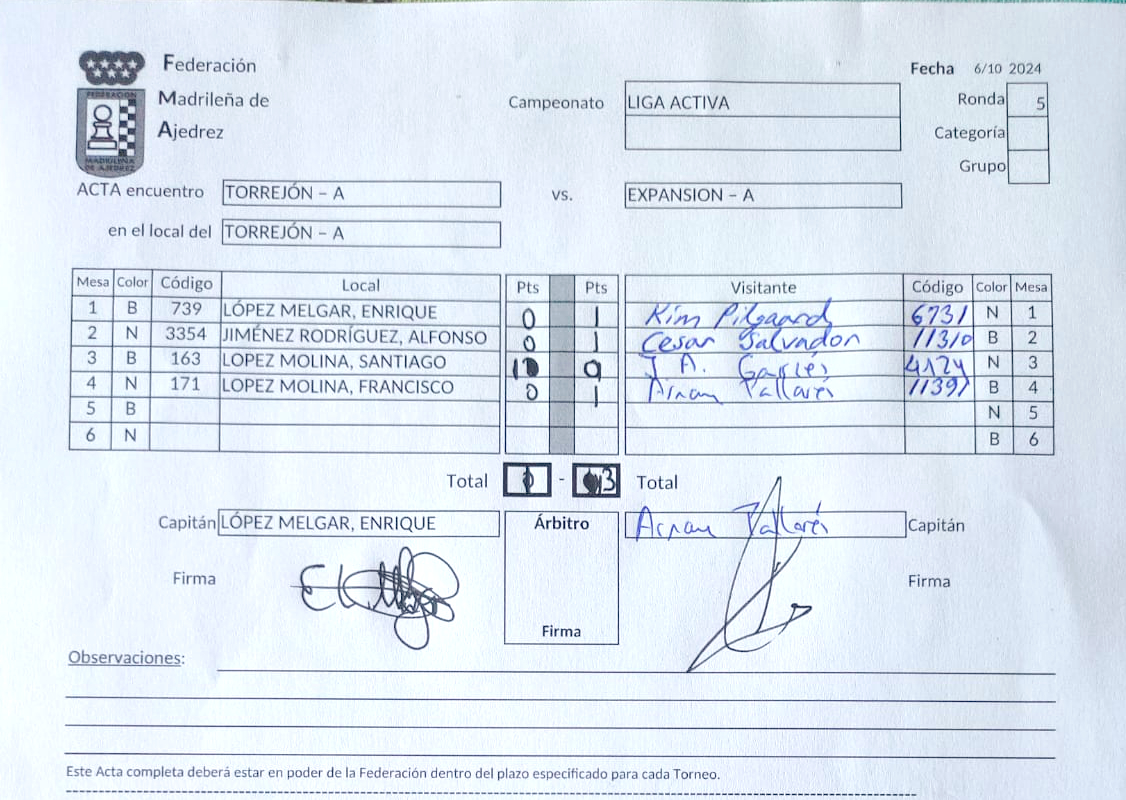 Federación
Madrileña de
Ajedrez
FEDERACIÓN
MADRILEÑA
DE AJEDREZ
Fecha 6/10 2024
Campeonato LIGA ACTIVA
Ronda 5
Categoría
Grupo
ACTA encuentro TORREJÓN – A vs. EXPANSION – A
en el local del TORREJÓN – A
Mesa Color Código Local Pts Pts Visitante Código Color Mesa
1 B 739 LÓPEZ MELGAR, ENRIQUE 0 1 Kim Pilgaard 6731 N 1
2 N 3354 JIMÉNEZ RODRÍGUEZ, ALFONSO 0 1 Cesar Salvador 11310 B 2
3 B 163 LOPEZ MOLINA, SANTIAGO 1 0 J. A. Garcés 4124 N 3
4 N 171 LOPEZ MOLINA, FRANCISCO 0 1 Arnau Pallarés 11391 B 4
5 B N 5
6 N B 6
Total 1 - 3 Total
Capitán LÓPEZ MELGAR, ENRIQUE Árbitro Arnau Pallarés Capitán
Firma Firma
Firma
Observaciones:
Este Acta completa deberá estar en poder de la Federación dentro del plazo especificado para cada Torneo.